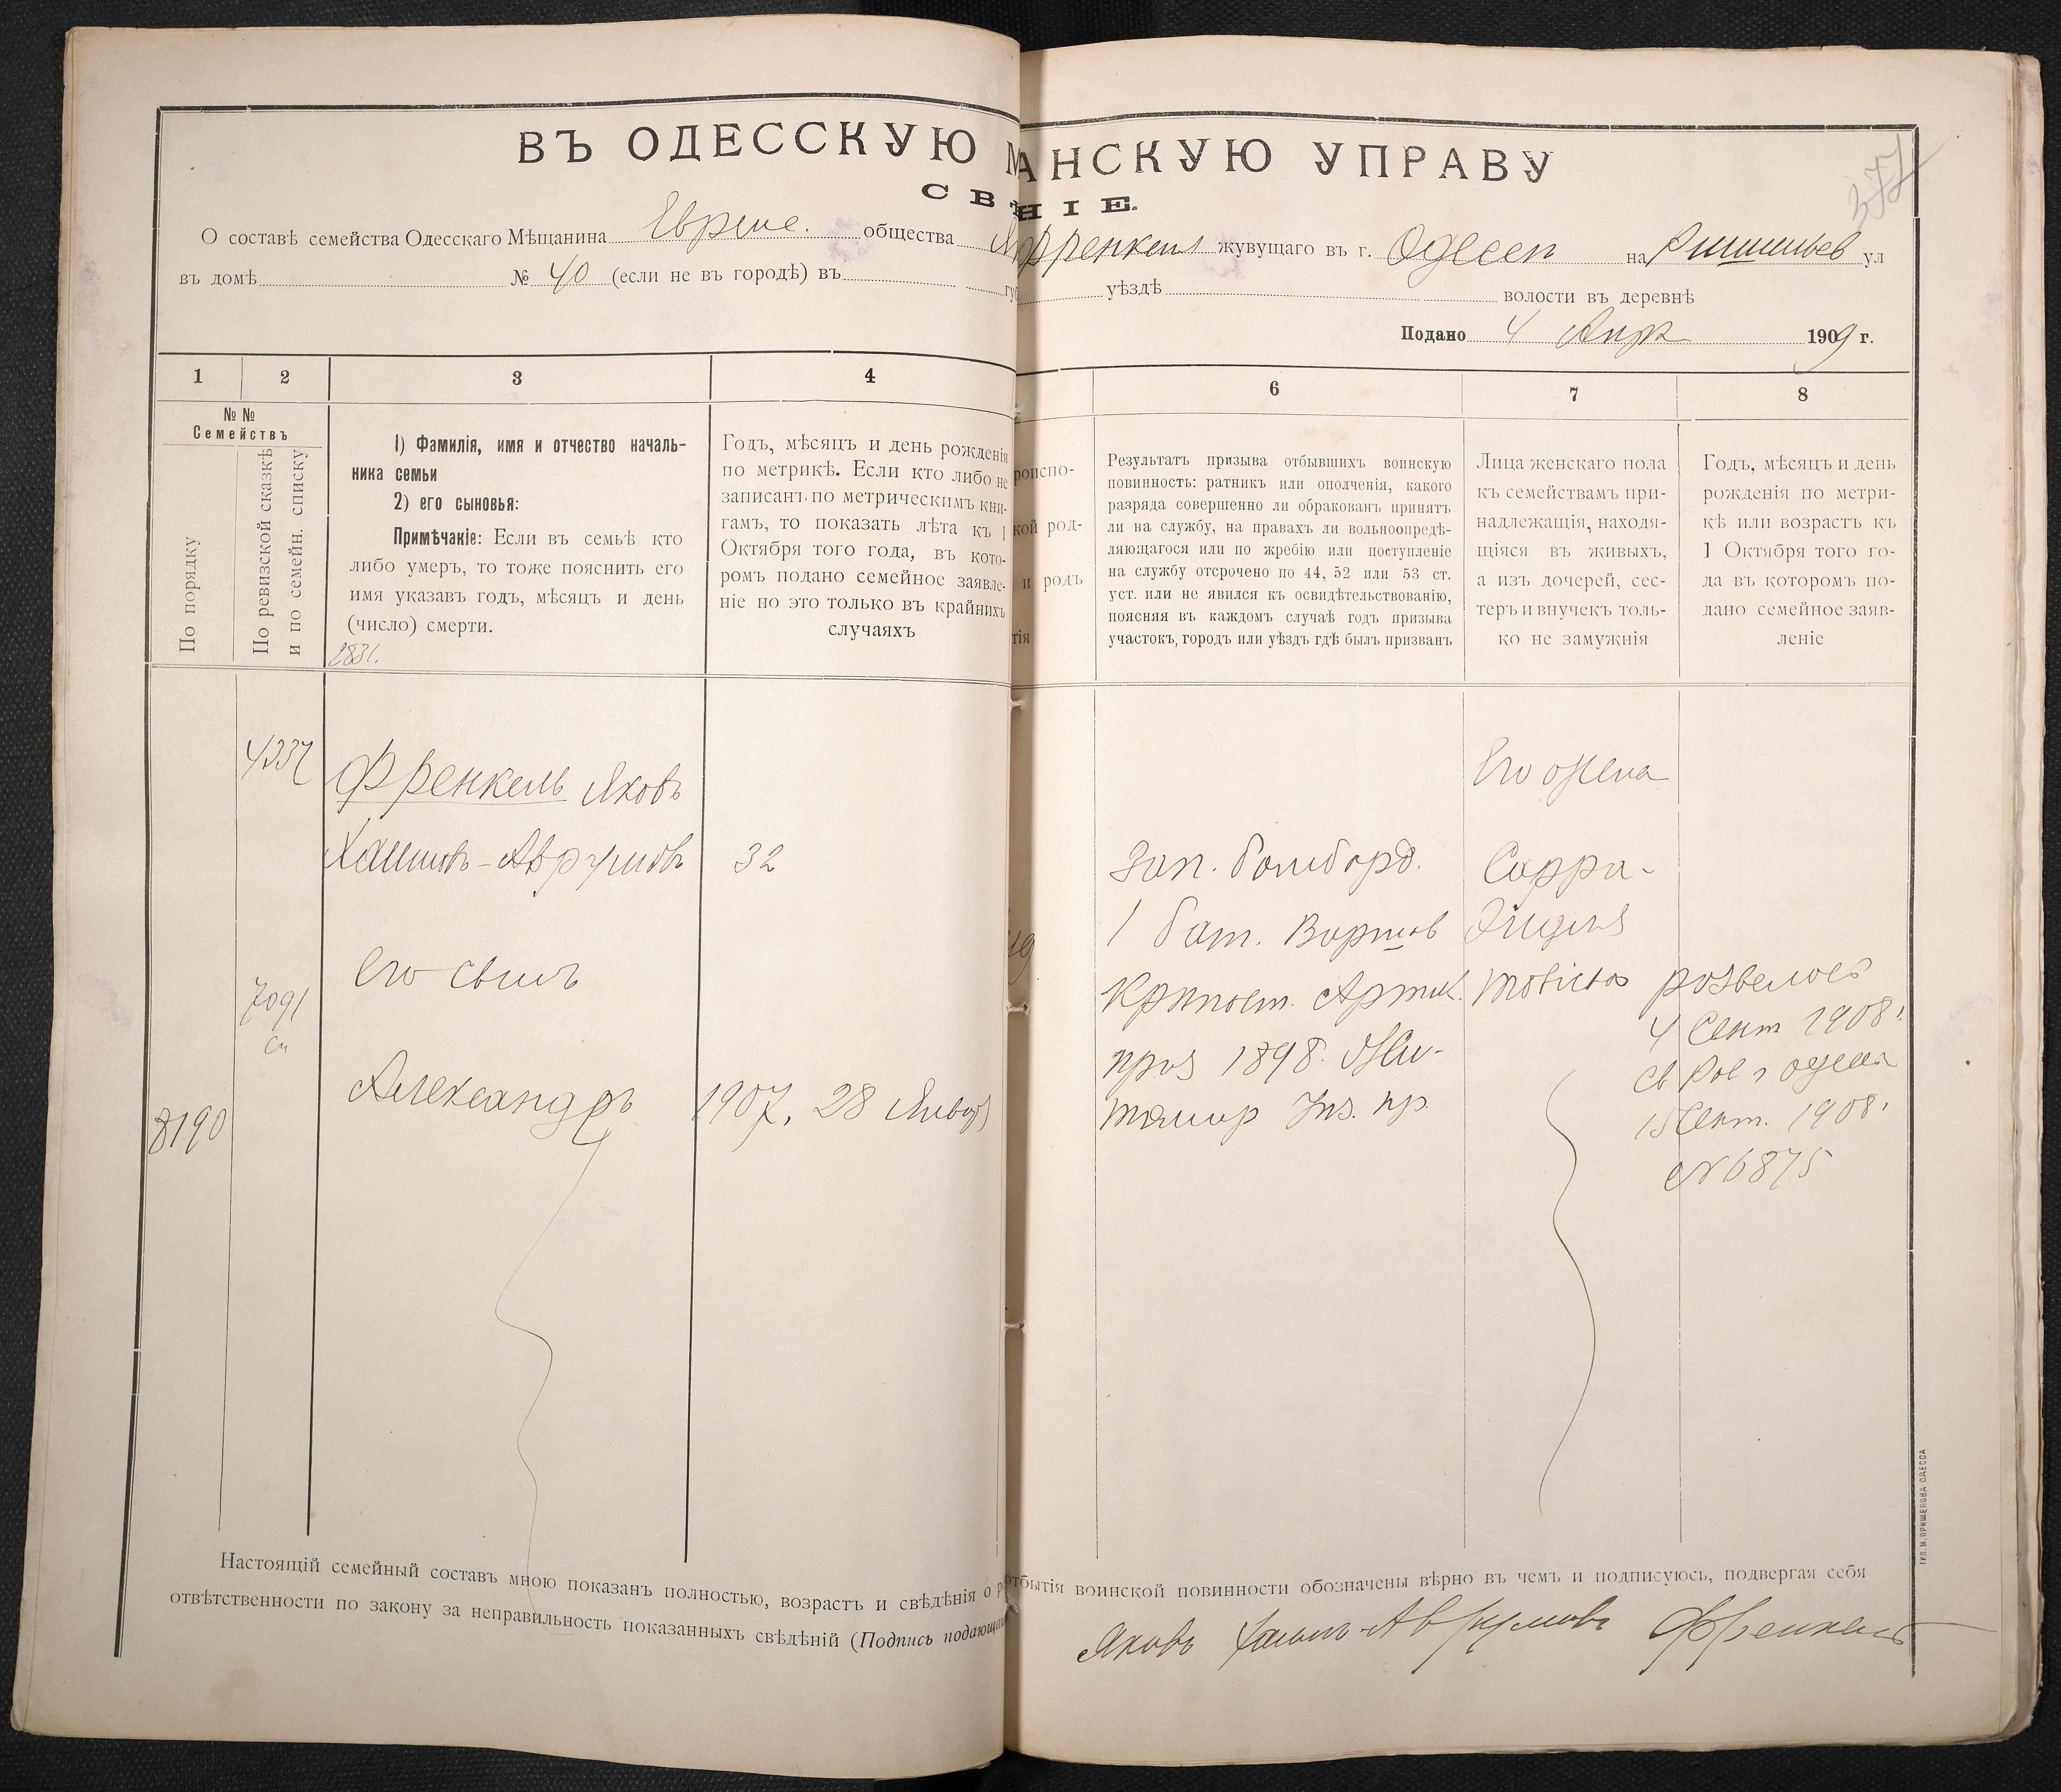 ВЪ ОДЕССКУЮ М АНСКУЮ УПРАВУ
СВ НІЕ.
О составѣ семейства Одесскаго Мѣщанина Еврейс. общества Я Френкеля жувущаго въ г. Одессѣ на Ришельев ул
въ домѣ № 40 (если не въ городѣ) въ уѣздѣ волости въ деревнѣ
Подано 4 Апр 1909 г.
1 2 3 4 6 7 8
№ №
Семействъ
По порядку
По ревизской сказкѣ
и по семейн. списку
1) Фамилія, имя и отчество началь-
ника семьи
2) его сыновья:
Примѣчакіе: Если въ семьѣ кто
либо умеръ, то тоже пояснить его
имя указавъ годъ, мѣсяцъ и день
(число) смерти.
2831.
Годъ, мѣсяцъ и день рожденія
по метрикѣ. Если кто либо не
записанъ по метрическимъ кни-
гамъ, то показать лѣта къ 1
Октября того года, въ кото-
ромъ подано семейное заявле-
ніе но это только въ крайнихъ
случаяхъ
роиспо-
кой род-
и родъ
тія
Результатъ призыва отбывшихъ воинскую
повинность: ратникъ или ополченія, какого
разряда совершенно ли обракованъ принятъ
ли на службу, на правахъ ли вольноопредѣ-
ляющагося или по жребію или поступленіе
на службу отсрочено по 44, 52 или 53 ст.
уст. или не явился къ освидѣтельствованію,
поясняя въ каждомъ случаѣ годъ призыва
участокъ, городъ или уѣздъ гдѣ былъ призванъ
Лица женскаго пола
къ семействамъ при-
надлежащія, находя-
щіяся въ живыхъ,
а изъ дочерей, сес-
теръ и внучекъ толь-
ко не замужнія
Годъ, мѣсяцъ и день
рожденія по метри-
кѣ или возрастъ къ
1 Октября того го-
да въ которомъ по-
дано семейное заяв-
леніе
4337
Френкель Яковъ
Хаимовъ-Аврумовъ 32
Его сынъ
7091
сп
Александръ 1907, 28 Января
8190
Зап. бомборд.
1 бат. Варшав
Крѣпост. Артил.
приз 1898. Жи-
томир Уѣз. пр.
Его жена
Сарра-
Эйдля
Мовшов развелся
4 Сент 1908г
св Рав г Одесса
15 Сент. 1908г
№ 6875
Настоящій семейный составъ мною показанъ полностью, возрастъ и свѣдѣнія о р отбытія воинской повинности обозначены вѣрно въ чемъ и подписуюсь, подвергая себя
отвѣтственности по закону за неправильность показанныхъ свѣдѣній (Подпись подающ
Яковъ Хаимъ-Аврумовъ Френкель
ТИП. М. ПРИЩЕПОВА ОДЕССА